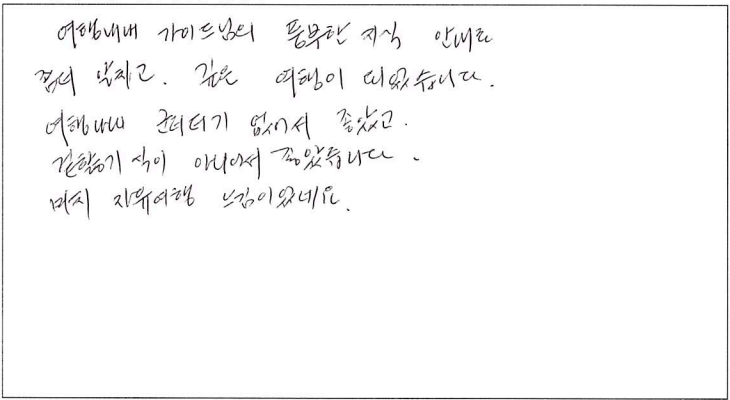 여행내내 가이드님의 풍부한 지식 안내로
좀더 알차고. 깊은 여행이 되었습니다.
여행내내 군더더기 없어서 좋았고.
겉핥기식이 아니어서 좋았습니다.
마치 자유여행 느낌이었네요.